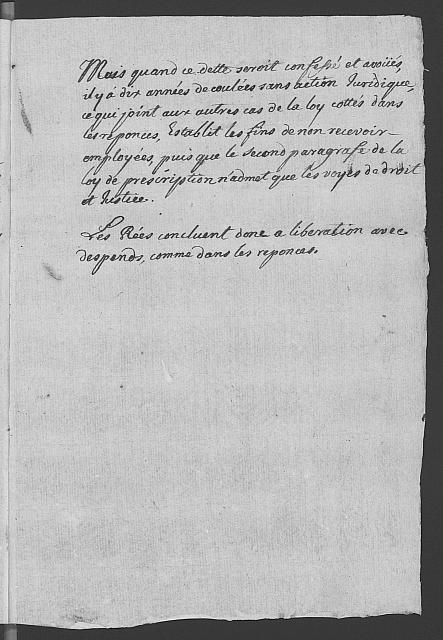 Mais quand ce dette seroit confessé et avoüés,
il y à dix années de coulées sans action Juridique,
ce qui joint aux autres cas de la loy cottés dans
les reponces, Establit les fins de non recevoir
employées, puis que le second paragrafe de la
loy de prescription n'admet que les voyes de droit
et Justice.
Les Rées concluent donc a liberation avec
despends, comme dans les reponces.